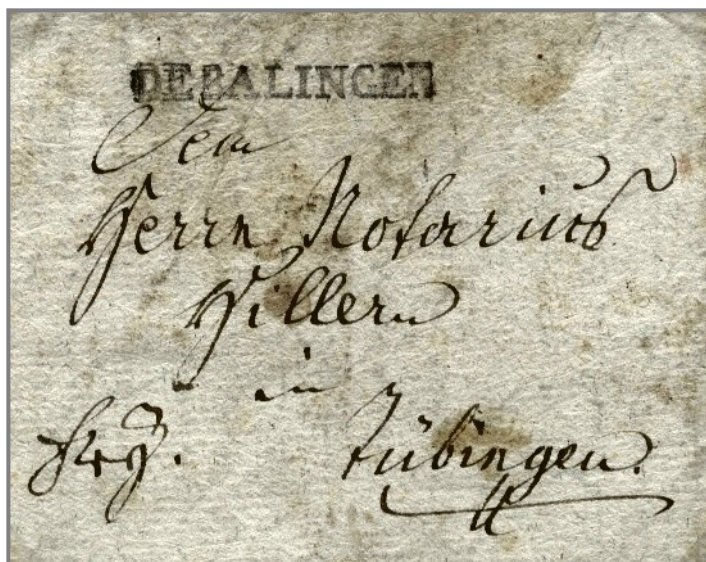 DE BALINGEN
Dem
Herrn Notarius
Hillern
in
frey. Tübingen.